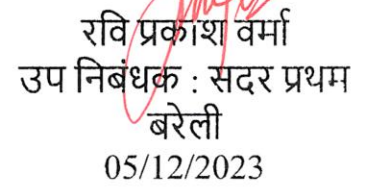 रवि प्रकाश वर्मा
उप निबंधक : सदर प्रथम
बरेली
05/12/2023